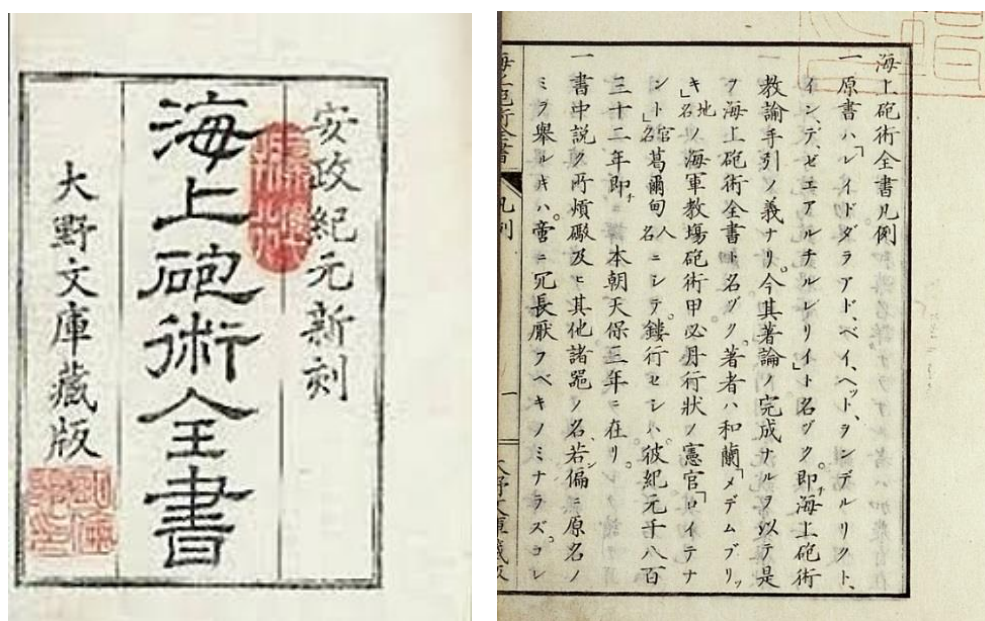 安政紀元新刻
海上砲術全書
大野文庫藏版
海上砲術全書凡例
一原書ハ「レイドダラアド、ベイ、ヘット、ヲンデルリクト、
イン、デ、ゼエアルチルレリイ」ト名ヅク。即チ海上砲術
教諭手引ノ義ナリ。今其著論ノ完成ナルヲ以テ是
ヲ海上砲術全書ト名ヅク。著者ハ和蘭「メデムブリッ
キ」地名ノ海軍教場砲術甲必丹行狀ノ憲官「ロイテナ
ント」官名葛爾甸人名ニシテ鏤行セシハ、彼紀元千八百
三十二年即チ本朝天保三年ニ在リ。
一書中説ク所煩礮及ヒ其他諸器ノ名、若シ偏ニ原名ノ
ミヲ舉ルキハ、啻ニ冗長厭フベキノミナラズ。コレ
海上砲術全書
凡例
一
大野文庫藏版